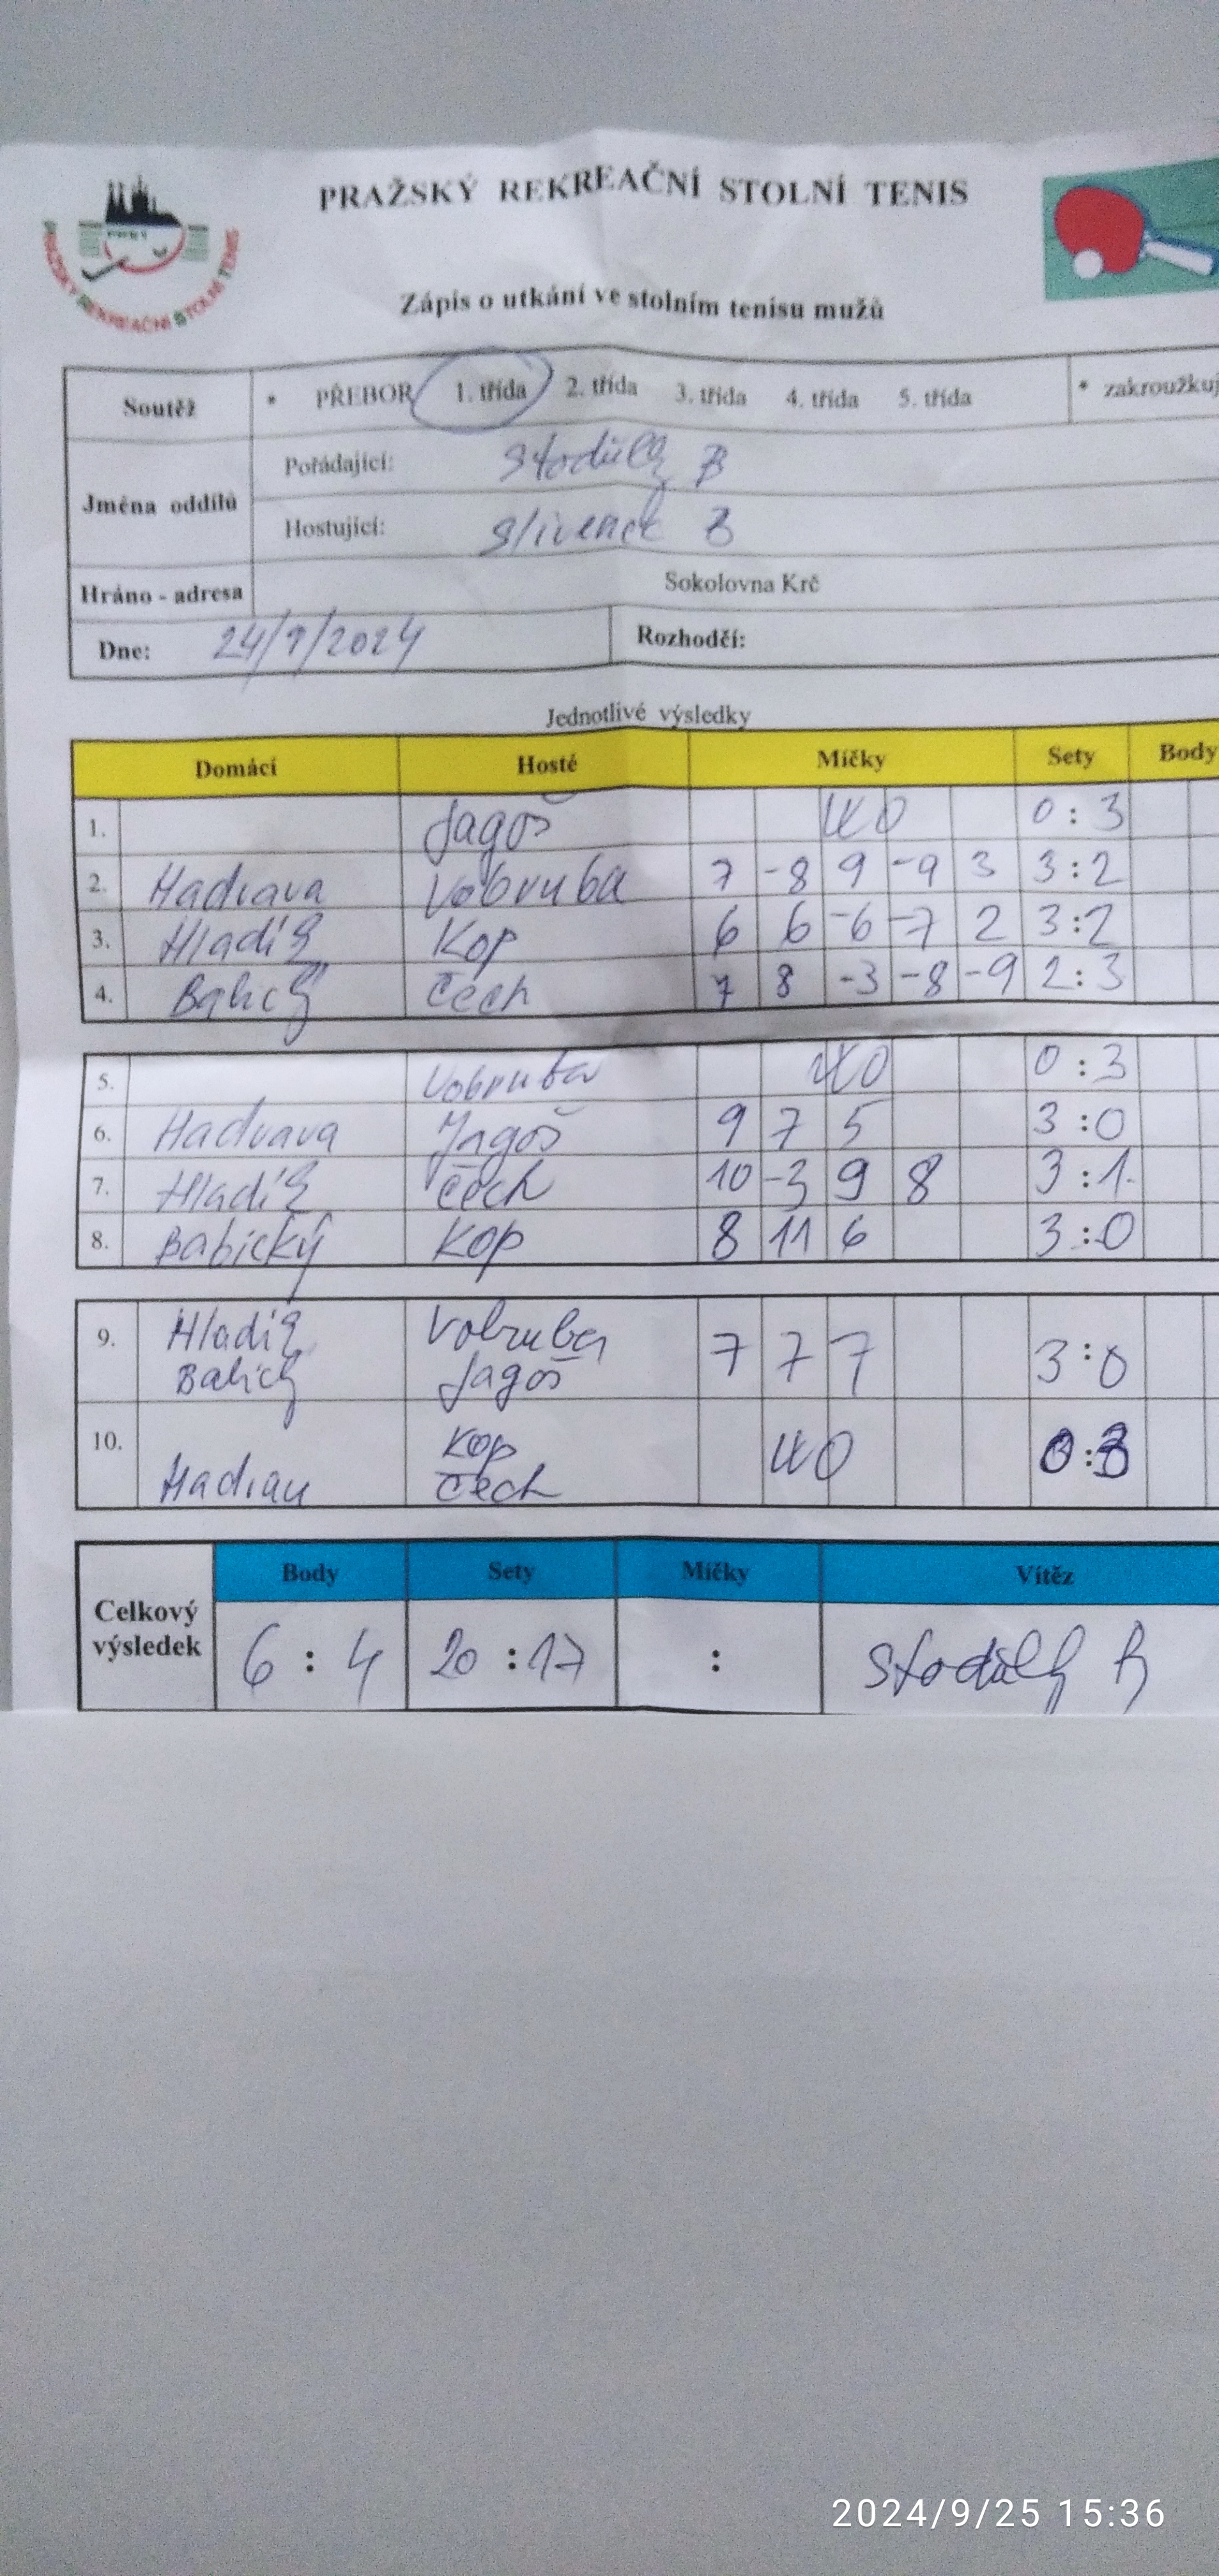 PRAŽSKÝ REKREAČNÍ STOLNÍ TENIS
PRAŽSKÝ REKREAČNÍ STOLNÍ TENIS
Zápis o utkání ve stolním tenisu mužů
Soutěž * PŘEBOR 1. třída 2. třída 3. třída 4. třída 5. třída * zakroužkuj
Jména oddílů
Pořádající: Stodůlky B
Hostující: Slivenec B
Hráno - adresa Sokolovna Krč
Dne: 24/9/2024 Rozhodčí:
Jednotlivé výsledky
Domácí Hosté Míčky Sety Body
1. Jagoš WO 0 : 3
2. Hadrava Vobruba 7 -8 9 -9 3 3 : 2
3. Hladík Kop 6 6 -6 -7 2 3 : 2
4. Čech 7 8 -3 -8 -9 2 : 3
5. Vobruba WO 0 : 3
6. Hadrava Jagoš 9 7 5 3 : 0
7. Hladík Čech 10 -3 9 8 3 : 1
8. Babický Kop 8 11 6 3 : 0
9. Hladík Vobruba 7 7 7 3 : 0
Jagoš
10. Kop WO 0 : 3
Čech
Body Sety Míčky Vítěz
Celkový výsledek 6 : 4 20 : 17 : Stodůlky B
2024/9/25 15:36